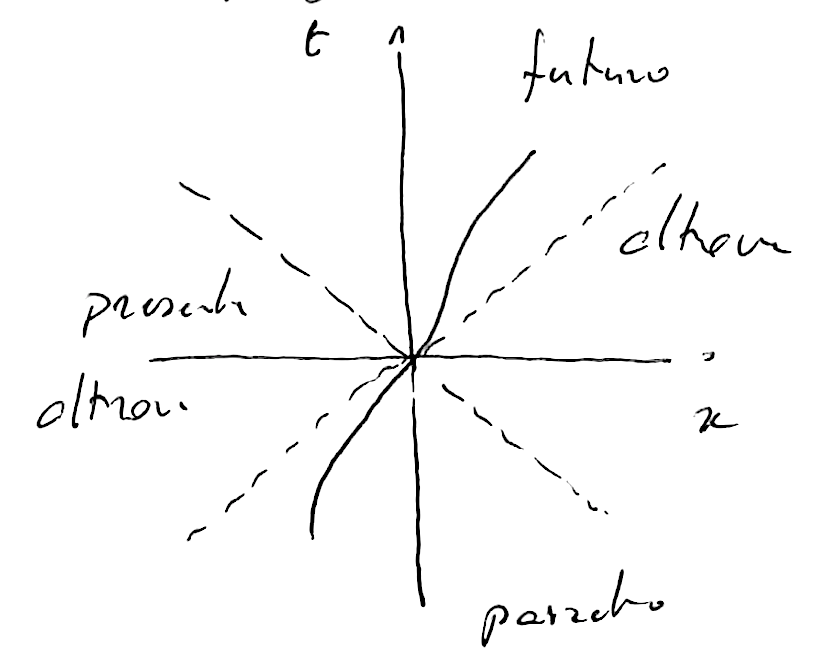 t
futuro
altrove
presente
altrove
x
passato